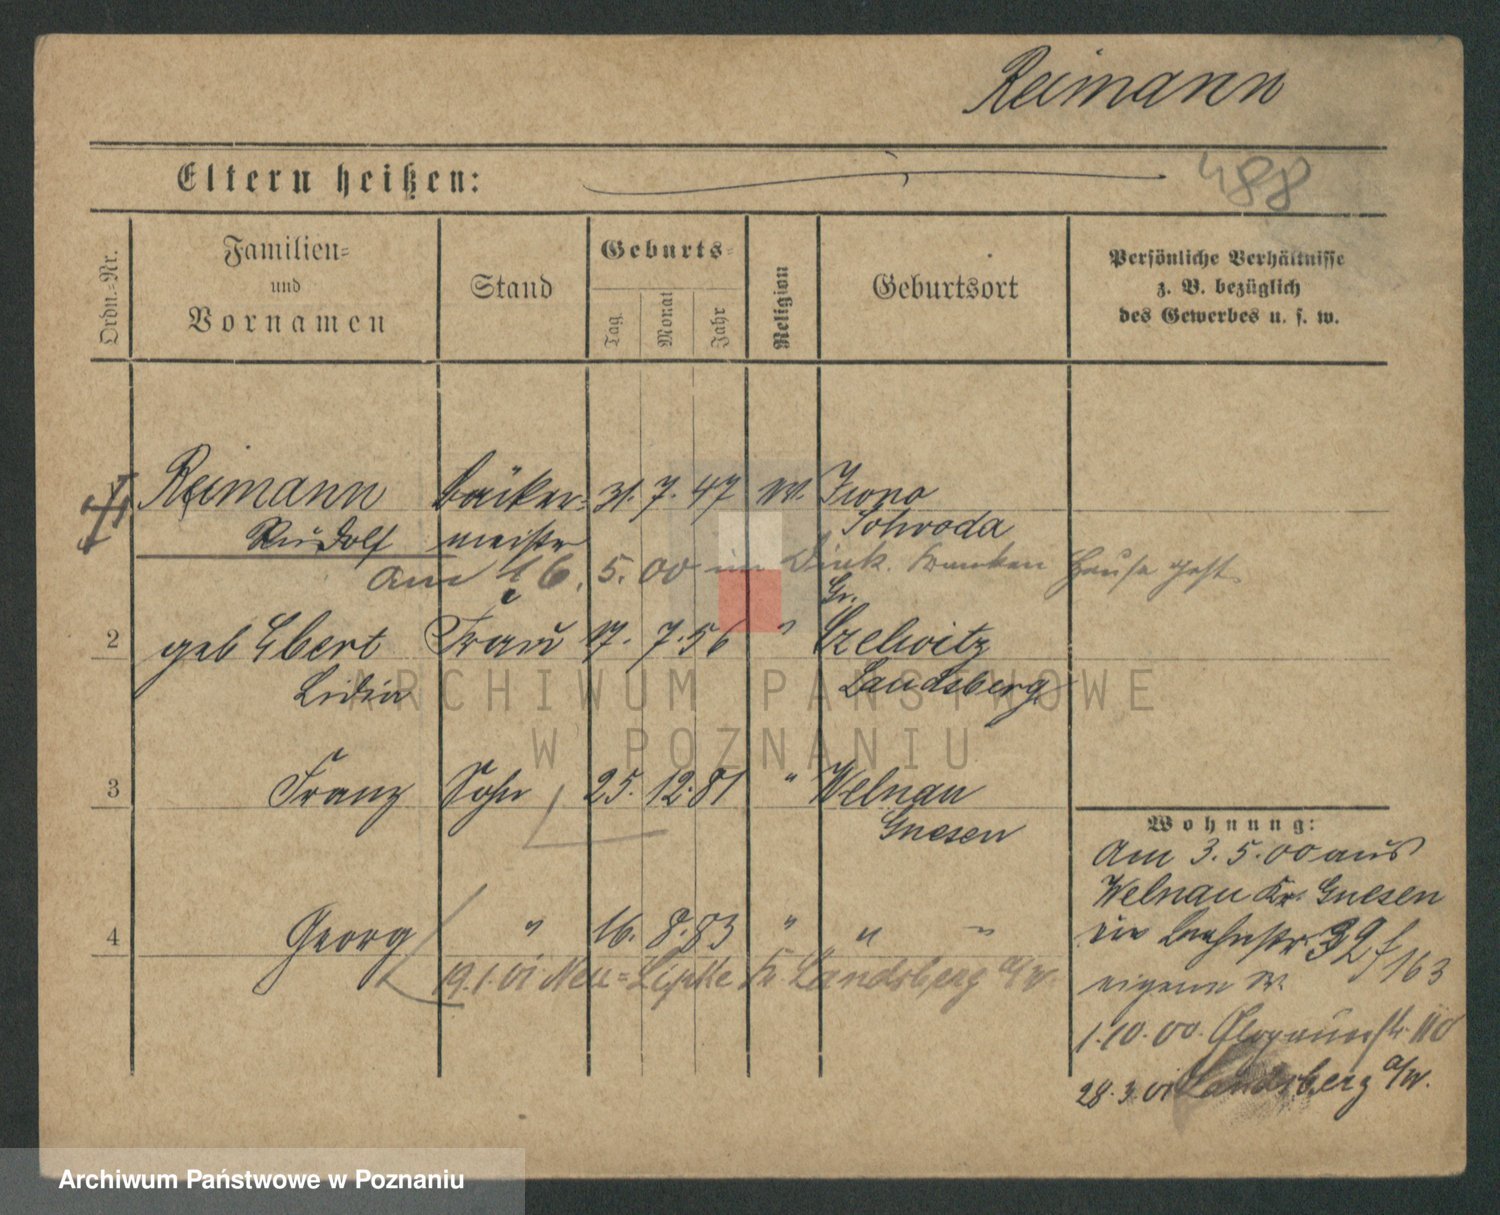 Reimann
Eltern heißen:
488
Ordn.-Nr.
Familien-
und
Vornamen
Stand
Geburts-
Tag
Monat
Jahr
Religion
Geburtsort
Persönliche Verhältnisse
z. B. bezüglich
des Gewerbes u. s. w.
Reimann Bäcker- 31. 7. 47
Rudolf meister Schroda
am 16. 5. 00 im Diak. Kranken Hause gest.
Gr.
2 geb Ebert Frau 17. 7. 56 " Czettritz
Lidia Landsberg
3 Franz Sohn 25. 12. 81 " Welnau
Gnesen
4 Georg " 16. 8. 83 " " "
19.1.01 Neu= Kr. Landsberg a/W.
Wohnung:
Am 3. 5. 00 aus
Welnau Kr. Gnesen
in 39 / 163
eigene W.
1.10.00. Glogauerstr. 110
28.3.01 Landsberg a/W.
ARCHIWUM PAŃSTWOWE
W POZNANIU
Archiwum Państwowe w Poznaniu